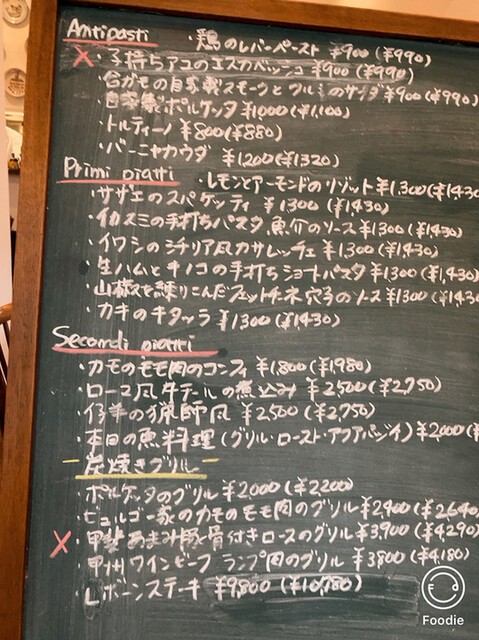 Antipasti
・鶏のレバーペースト ¥900(¥990)
×・子持ちアユのエスカベッシュ ¥900(¥990)
・合ガモの自家製スモークとクルミのサラダ ¥900(¥990)
・自家製ポルケッタ ¥1000(¥1,100)
・トルティーノ ¥800(¥880)
・バーニャカウダ ¥1200(¥1320)
Primi piatti
・レモンとアーモンドのリゾット ¥1,300(¥1,430
・サザエのスパゲッティ ¥1,300(¥1,430)
・イカスミの手打ちパスタ 魚介のソース ¥1300(¥1,430)
・イワシのシチリア風カサレッチェ ¥1,300(¥1,430)
・生ハムとキノコの手打ちショートパスタ ¥1300(¥1,430)
・山椒を練りこんだフェットチーネ 穴子の ¥1300(¥1,430
・カキのキタッラ ¥1300(¥1,430)
Secondi piatti
・カモのモモ肉のコンフィ ¥1,800(¥1,980)
・ローマ風牛テールの煮込み ¥2,500(¥2,750)
・仔羊の猟師風 ¥2,500(¥2,750)
・本日の魚料理(グリル・ロースト・アクアパッツァ) ¥2,000(¥
炭焼きグリル
・ポルケッタのグリル ¥2000(¥2,200)
・ビュルゴー家のカモのモモ肉のグリル ¥2400(¥2,640
×・甲斐あまみ豚骨付きロースのグリル ¥3,900(¥4,290)
・甲州ワインビーフ ランプ肉のグリル ¥3,800(¥4,180)
・Lボーンステーキ ¥9,800(¥10,780)
Foodie